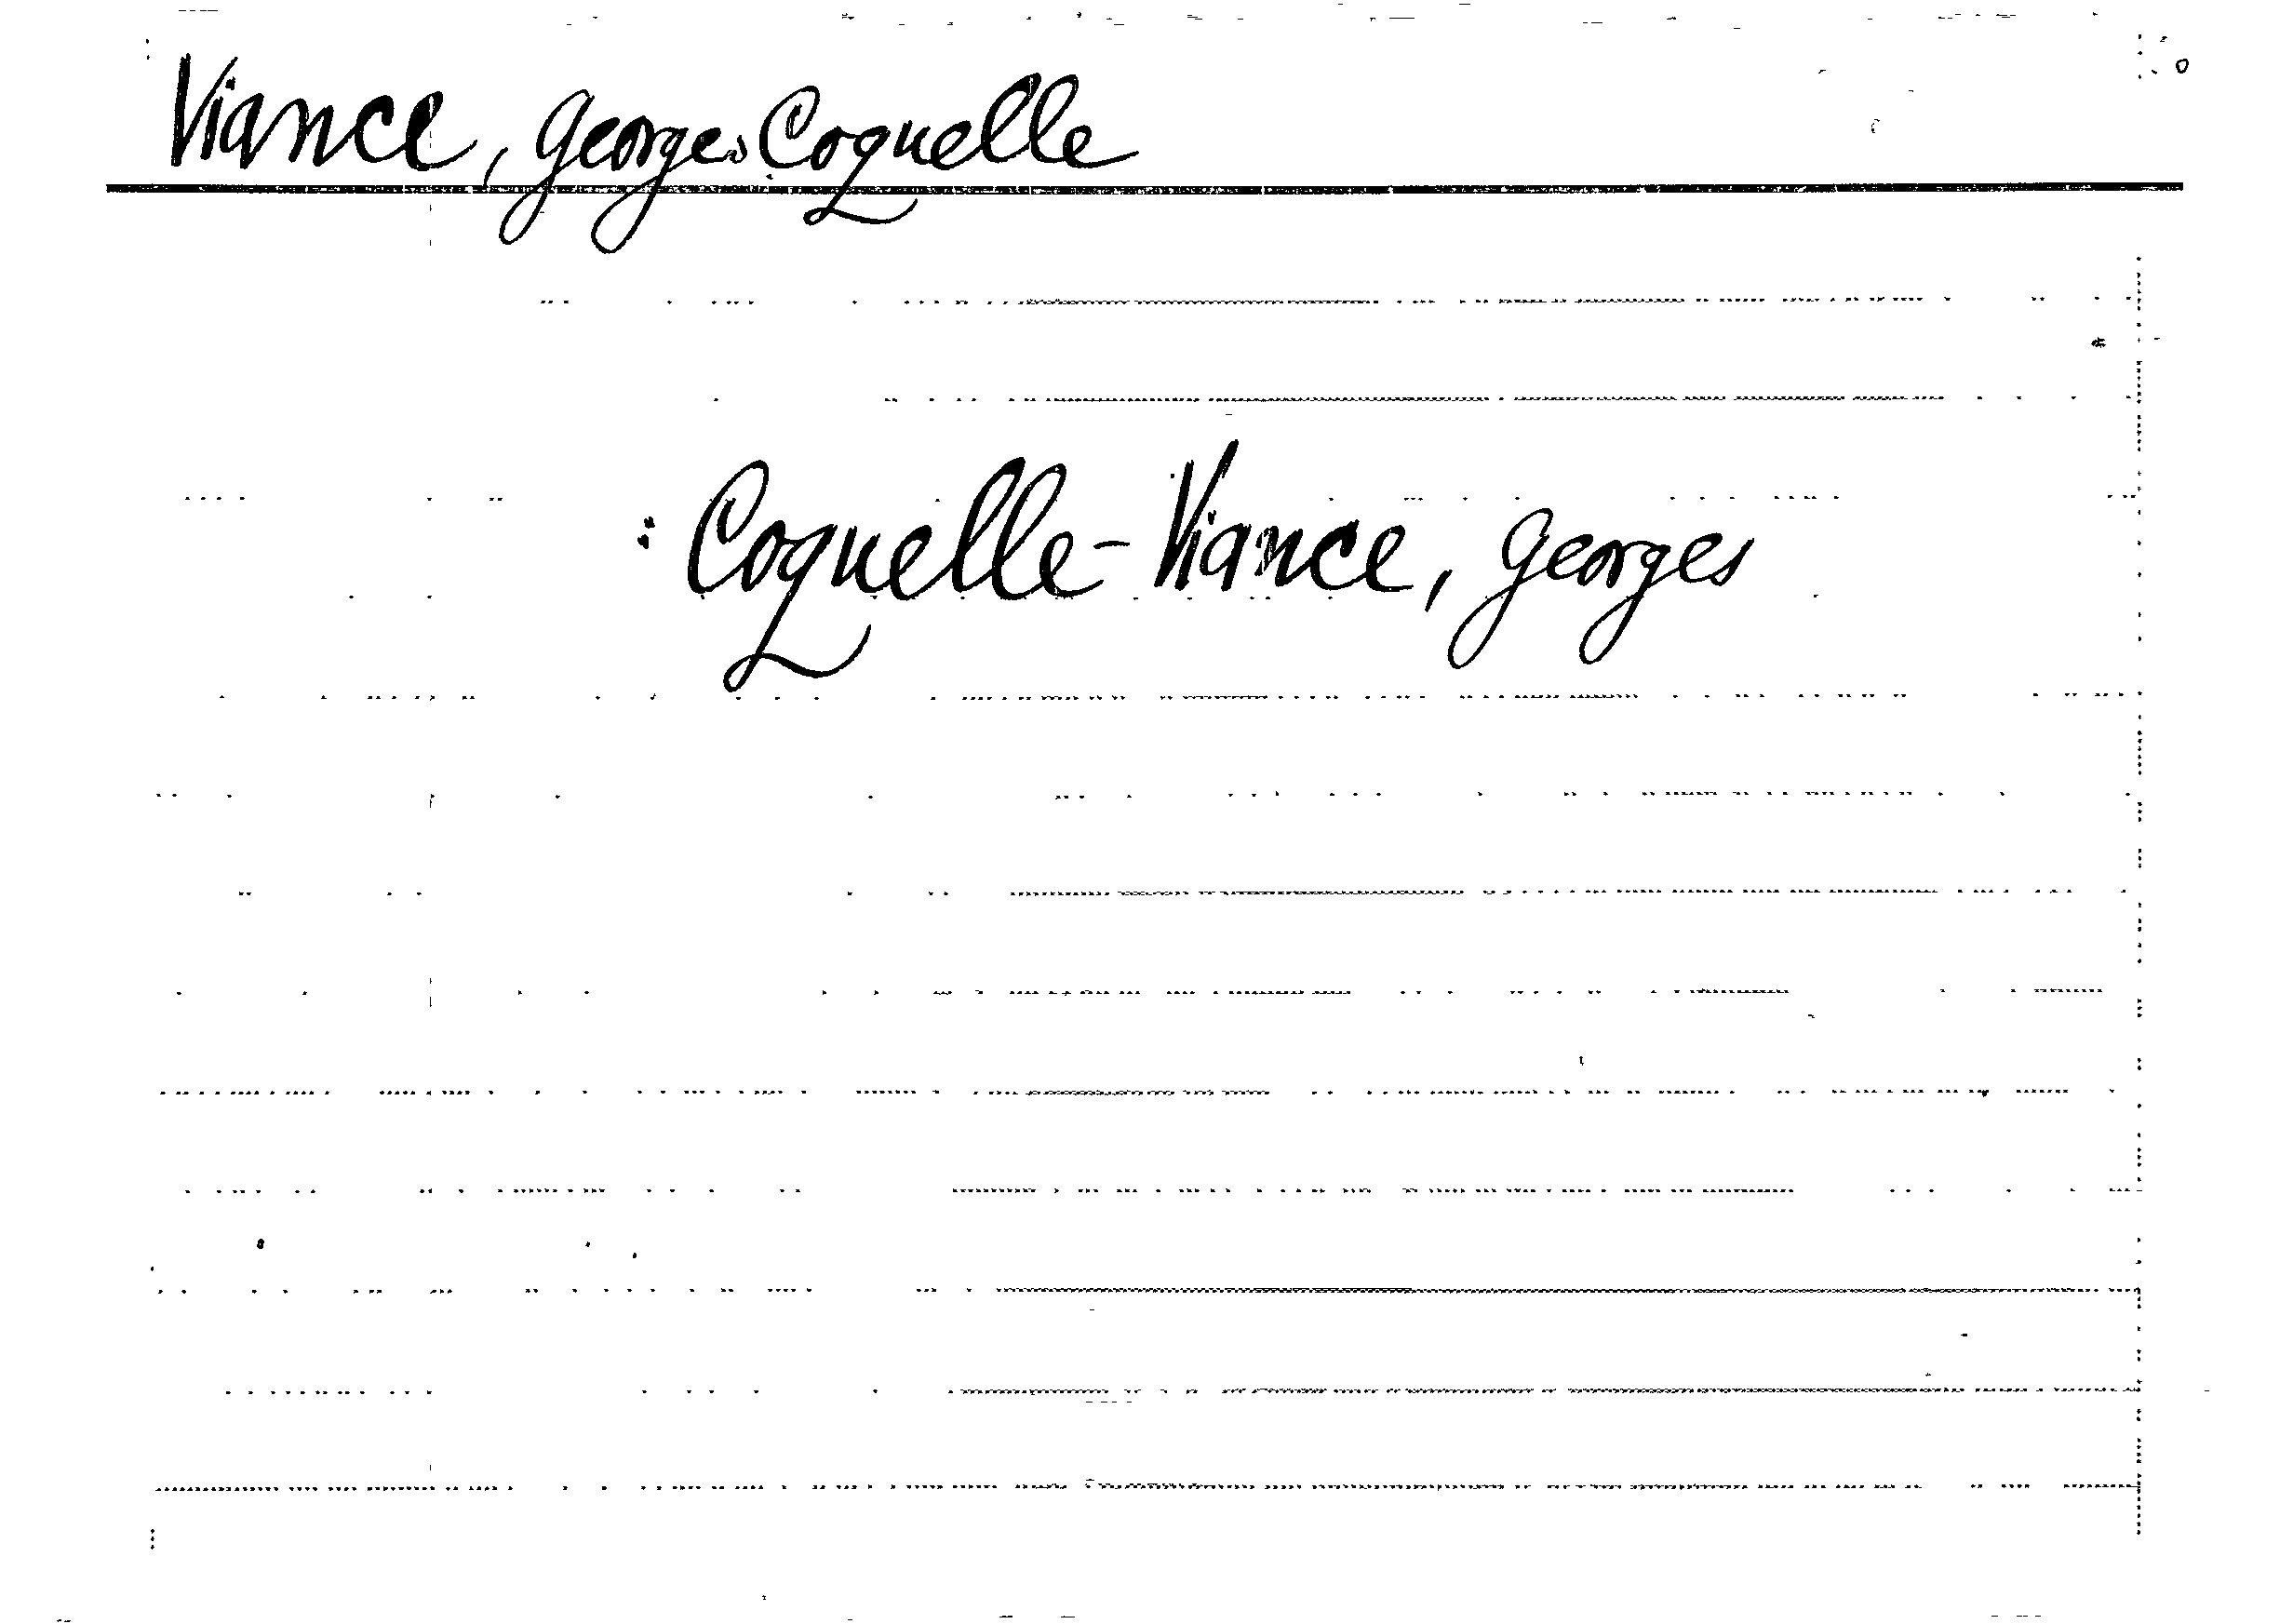 Viance, Georges Coquelle
: Coquelle-Viance, Georges